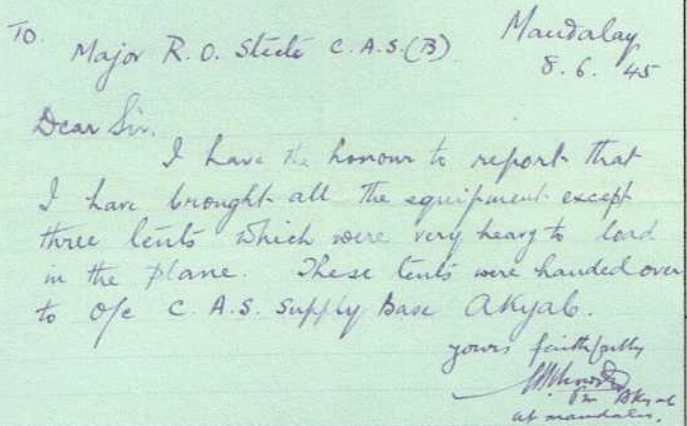 To. Mandalay
Major R. O. Steele C.A.S.(B) 8.6.45
Dear Sir.
I have the honour to report that
I have brought all the equipment except
three tents which were very heavy to load
in the plane. These tents were handed over
to o/c C.A.S. Supply Base Akyab.
yours faithfully
Akyab
at mandalay.